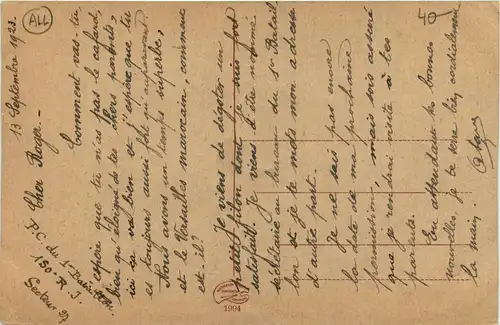 ALL
40
13 Septembre 1923.
Cher Roger -
P.C. du 1er Bataillon.
150e R. I.
Secteur 97
Comment vas-tu,
espère que tu n'as pas le cafard,
bien qu'éloigné de tes chers parents,
ici ça va bien et j'espère que tu
es toujours aussi fort qu'auparavant
Nous avons un temps superbe,
et le Versailles marocain, comment
est-il?
Je viens de dégoter un
petit filon dont je suis fort
satisfait. Je viens d'être nommé
secrétaire au bureau du 1er Batail
lon et je te mets mon adresse
d'autre part.
Je ne sais pas encore
la date de ma prochaine
permission, mais sois assuré
que je rendrai visite à tes
parents.
En attendant tes bonnes
nouvelles, je te serre bien cordialement
la main.
1904